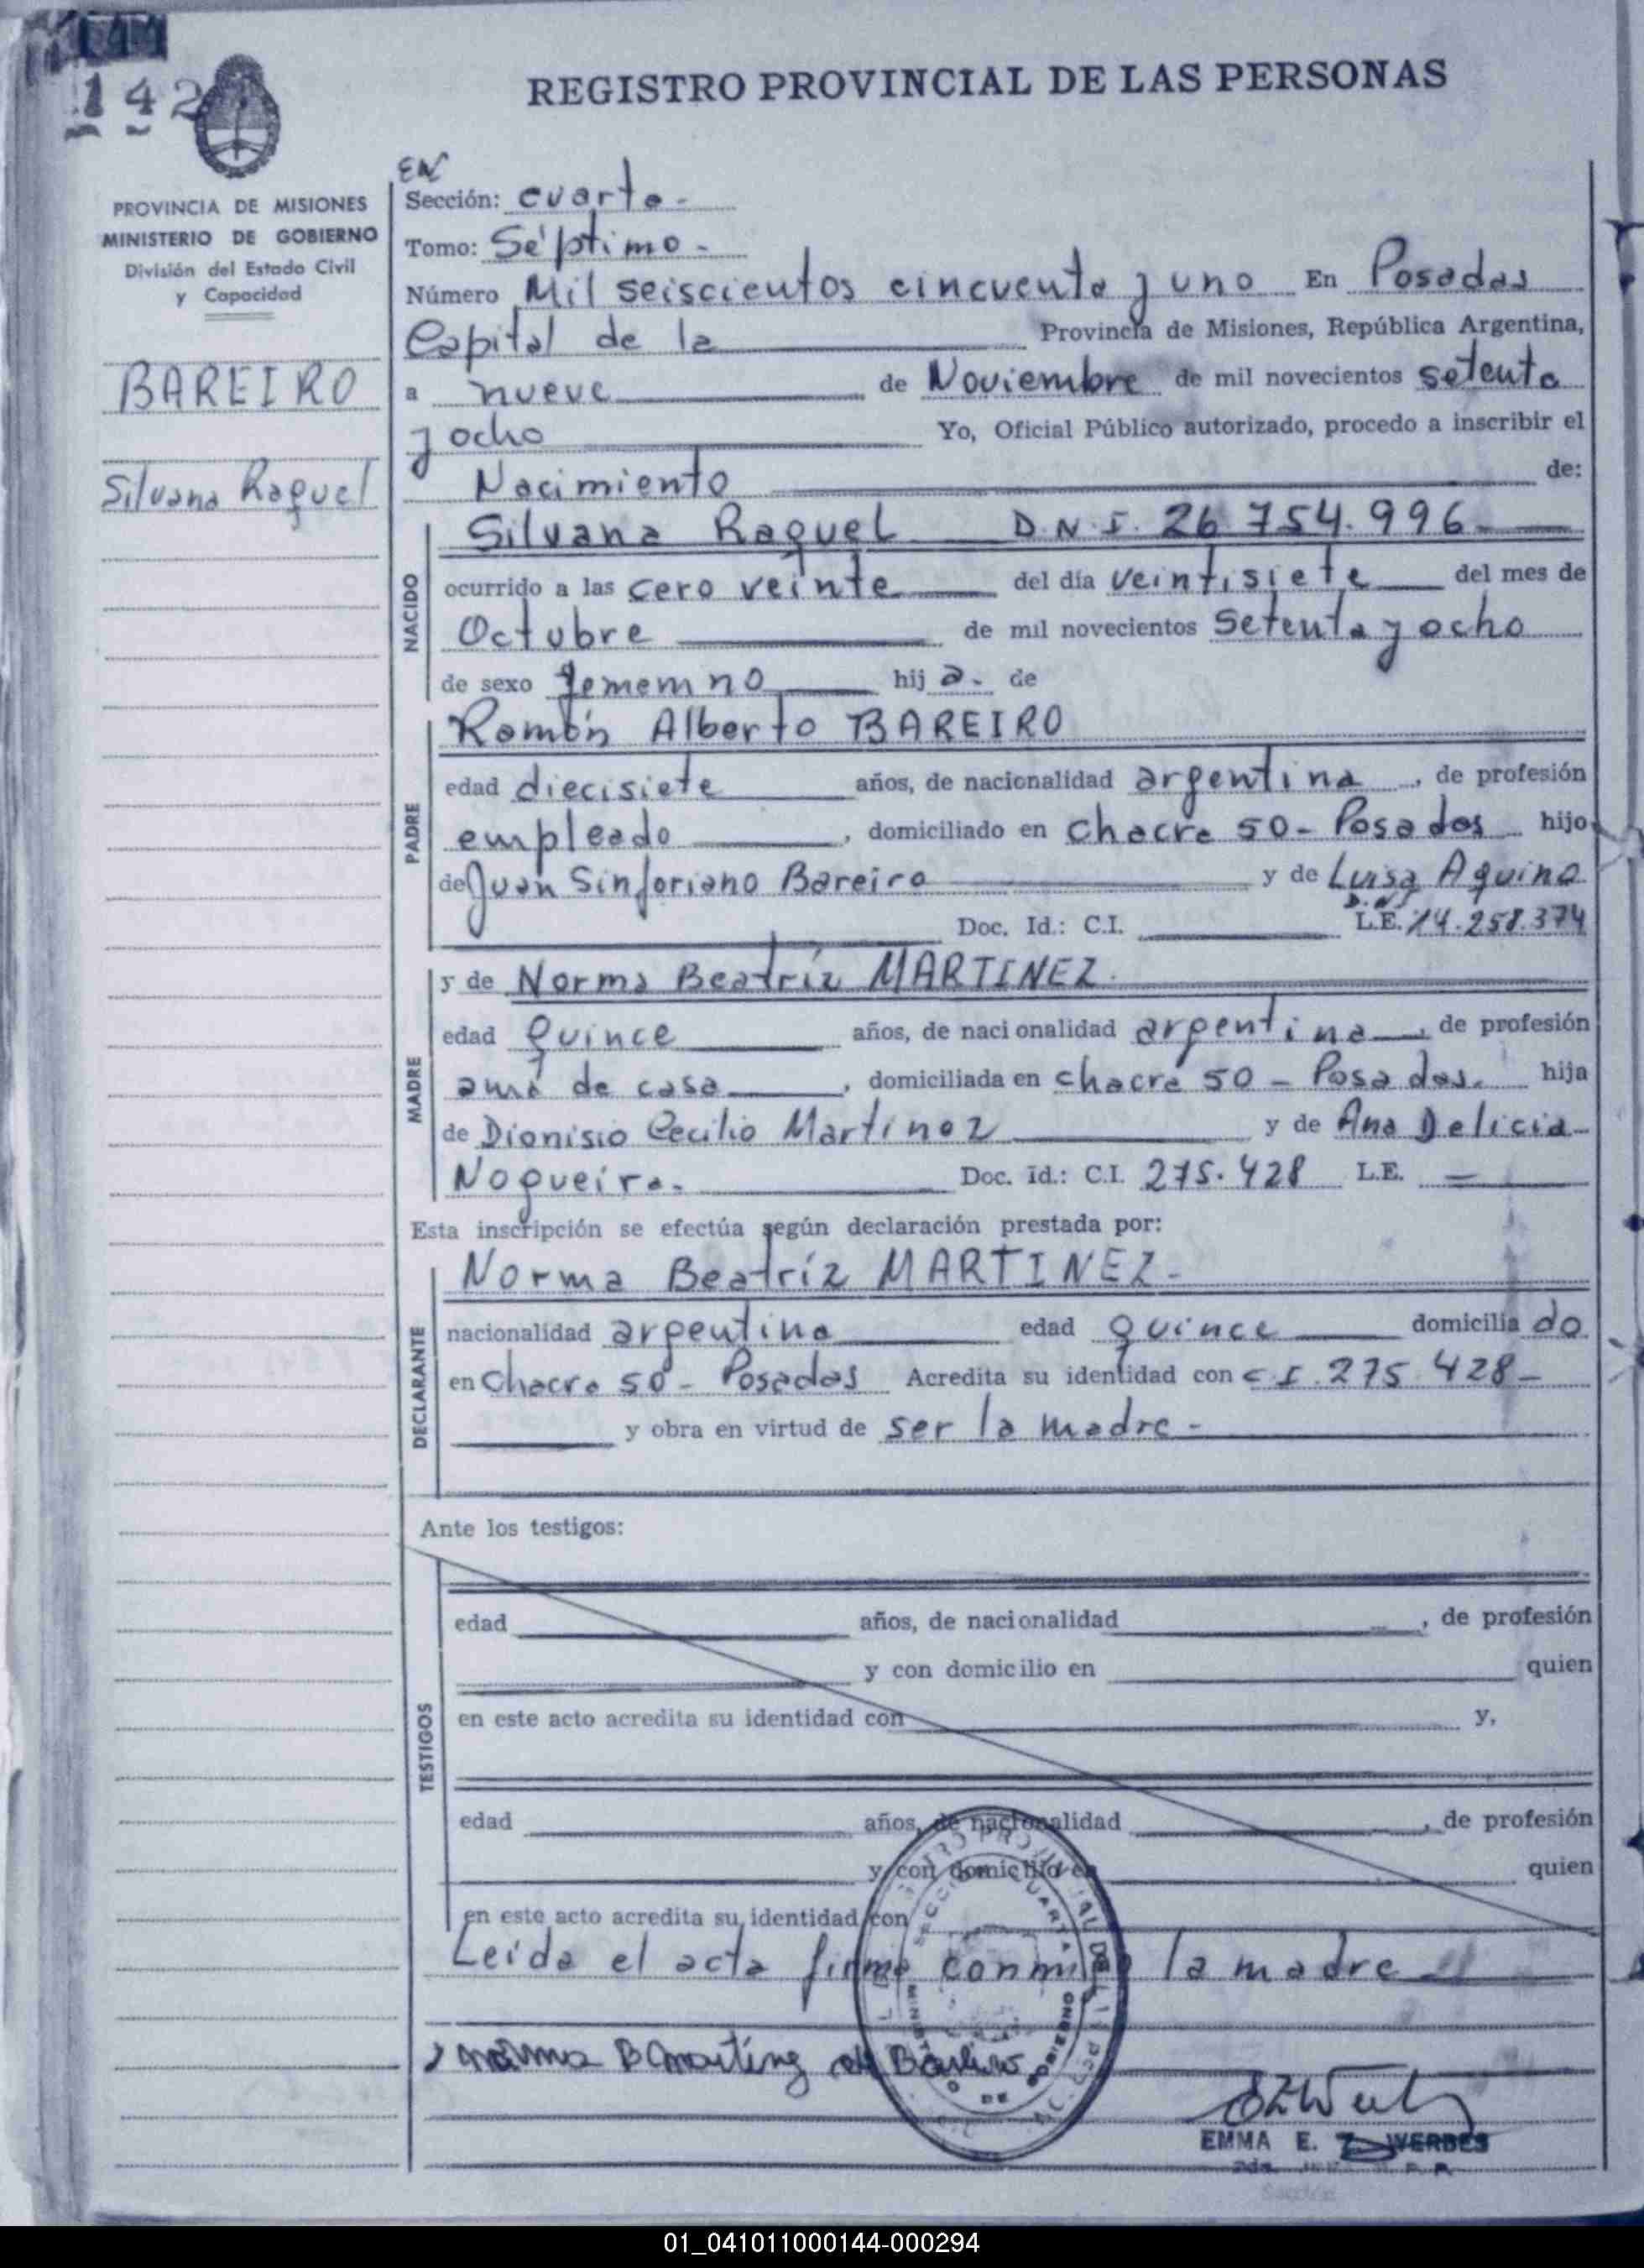 142
REGISTRO PROVINCIAL DE LAS PERSONAS
PROVINCIA DE MISIONES
MINISTERIO DE GOBIERNO
División del Estado Civil
y Capacidad
BAREIRO
Silvana Raquel
EN
Sección: cuarta -
Tomo: Séptimo -
Número Mil seiscientos cincuenta y uno En Posadas
Capital de la Provincia de Misiones, República Argentina,
a nueve de Noviembre de mil novecientos setenta
y ocho Yo, Oficial Público autorizado, procedo a inscribir el
Nacimiento de:
NACIDO
Silvana Raquel D.N.I. 26 754.996
ocurrido a las cero veinte del día veintisiete del mes de
Octubre de mil novecientos Setenta y ocho
de sexo femenino hij a. de
PADRE
Ramón Alberto BAREIRO
edad diecisiete años, de nacionalidad argentina, de profesión
empleado, domiciliado en chacra 50 - Posadas hijo
de Juan Sinforiano Bareiro y de Luisa Aquino
D.N.I
Doc. Id.: C.I. L.E. 14.258.374
MADRE
y de Norma Beatríz MARTINEZ.
edad Quince años, de nacionalidad argentina, de profesión
ama de casa, domiciliada en chacra 50 - Posadas. hija
de Dionisio Cecilio Martinez y de Ana Delicia
Nogueira. Doc. Id.: C.I. 275.428 L.E. —
Esta inscripción se efectúa según declaración prestada por:
DECLARANTE
Norma Beatríz MARTINEZ -
nacionalidad argentina edad quince domicilia do
en Chacra 50 - Posadas Acredita su identidad con C I. 275.428 -
y obra en virtud de ser la madre -
Ante los testigos:
TESTIGOS
edad años, de nacionalidad, de profesión
y con domicilio en quien
en este acto acredita su identidad con y,
edad años, de nacionalidad, de profesión
y con domicilio en quien
en este acto acredita su identidad con
Leída el acta firma conmigo la madre
SECCION CUARTA
EMMA E. Z. WERBES
01_041011000144-000294